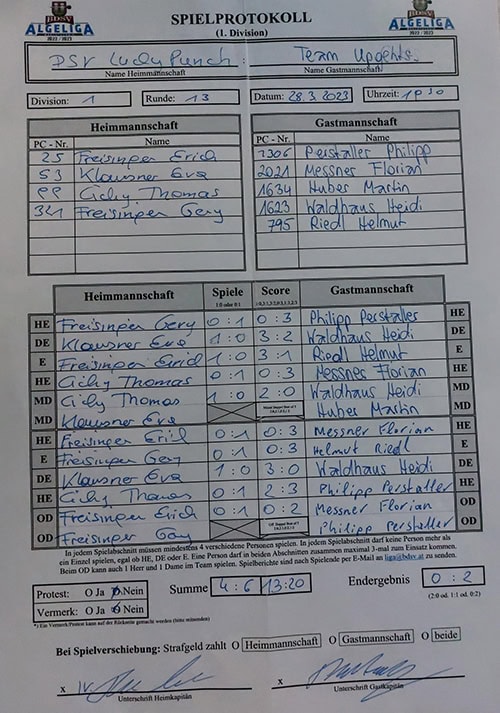 BDSV
ALGELIGA
2022 / 2023
SPIELPROTOKOLL
(1. Division)
BDSV
ALGELIGA
2022 / 2023
DSV Lucky Punch : Team Upgehts.
Name Heimmannschaft Name Gastmannschaft
Division: 1 Runde: 13 Datum: 28.3.2023 Uhrzeit: 1930
Heimmannschaft Gastmannschaft
PC - Nr. Name PC - Nr. Name
25 Freisinger Erich 1306 Perstaller Philipp
53 Klausner Eva 2021 Messner Florian
99 Cichy Thomas 1634 Huber Martin
341 Freisinger Gery 1623 Waldhaus Heidi
795 Riedl Helmut
Heimmannschaft Spiele Score Gastmannschaft
1:0 oder 0:1
HE Freisinger Gery 0 : 1 0 : 3 Philipp Perstaller HE
DE Klausner Eva 1 : 0 3 : 2 Waldhaus Heidi DE
E Freisinger Erich 1 : 0 3 : 1 Riedl Helmut E
HE Cichy Thomas 0 : 1 0 : 3 Messner Florian HE
MD Cichy Thomas 1 : 0 2 : 0 Waldhaus Heidi MD
MD Klausner Eva Huber Martin MD
HE Freisinger Erich 0 : 1 0 : 3 Messner Florian HE
E Freisinger Gery 0 : 1 0 : 3 Helmut Riedl E
DE Klausner Eva 1 : 0 3 : 0 Waldhaus Heidi DE
HE Cichy Thomas 0 : 1 2 : 3 Philipp Perstaller HE
OD Freisinger Erich 0 : 1 0 : 2 Messner Florian OD
OD Freisinger Gery Philipp Perstaller OD
In jedem Spielabschnitt müssen mindestens 4 verschiedene Personen spielen. In jedem Spielabschnitt darf keine Person mehr als
ein Einzel spielen, egal ob HE, DE oder E. Eine Person darf in beiden Abschnitten zusammen maximal 3-mal zum Einsatz kommen.
Beim OD kann auch 1 Herr und 1 Dame im Team spielen. Spielberichte sind nach Spielende per E-Mail an liga@bdsv.at zu senden.
Protest: O Ja O Nein Summe 4 : 6 13:20 Endergebnis 0 : 2
Vermerk: O Ja O Nein (2:0 od. 1:1 od. 0:2)
*) Ein Vermerk/Protest kann auf der Rückseite gemacht werden (bitte mitsenden)
Bei Spielverschiebung: Strafgeld zahlt O Heimmannschaft O Gastmannschaft O beide
x x
Unterschrift Heimkapitän Unterschrift Gastkapitän